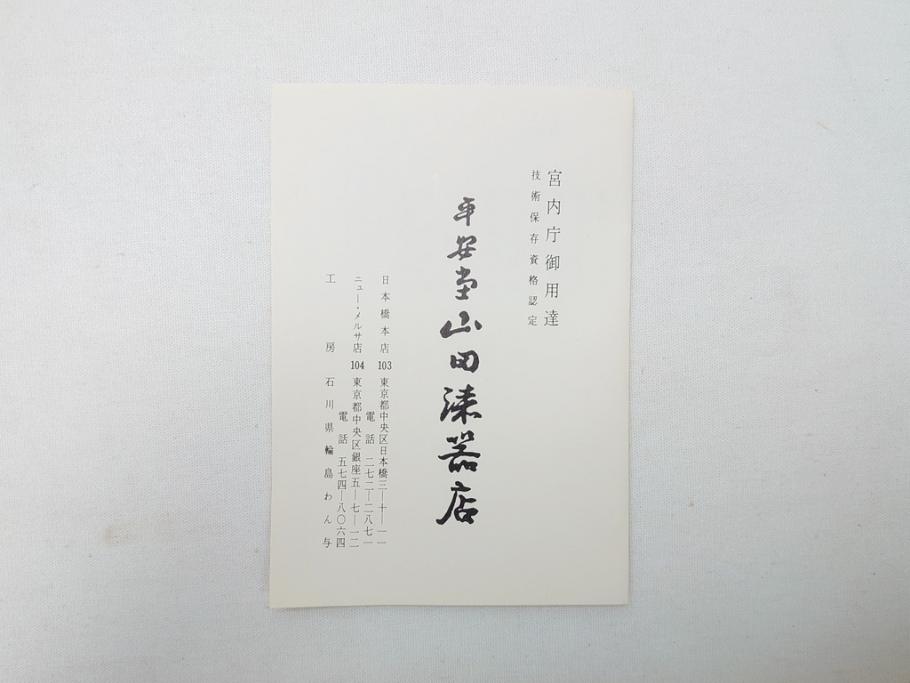 宮内庁御用達
技術保存資格認定
平安堂山田漆器店
日本橋本店 103 東京都中央区日本橋三―十―一一
電話 二七二―二八七一
ニュー・メルサ店 104 東京都中央区銀座五―七―一二
電話 五七四―八〇六四
工房 石川県輪島わん与